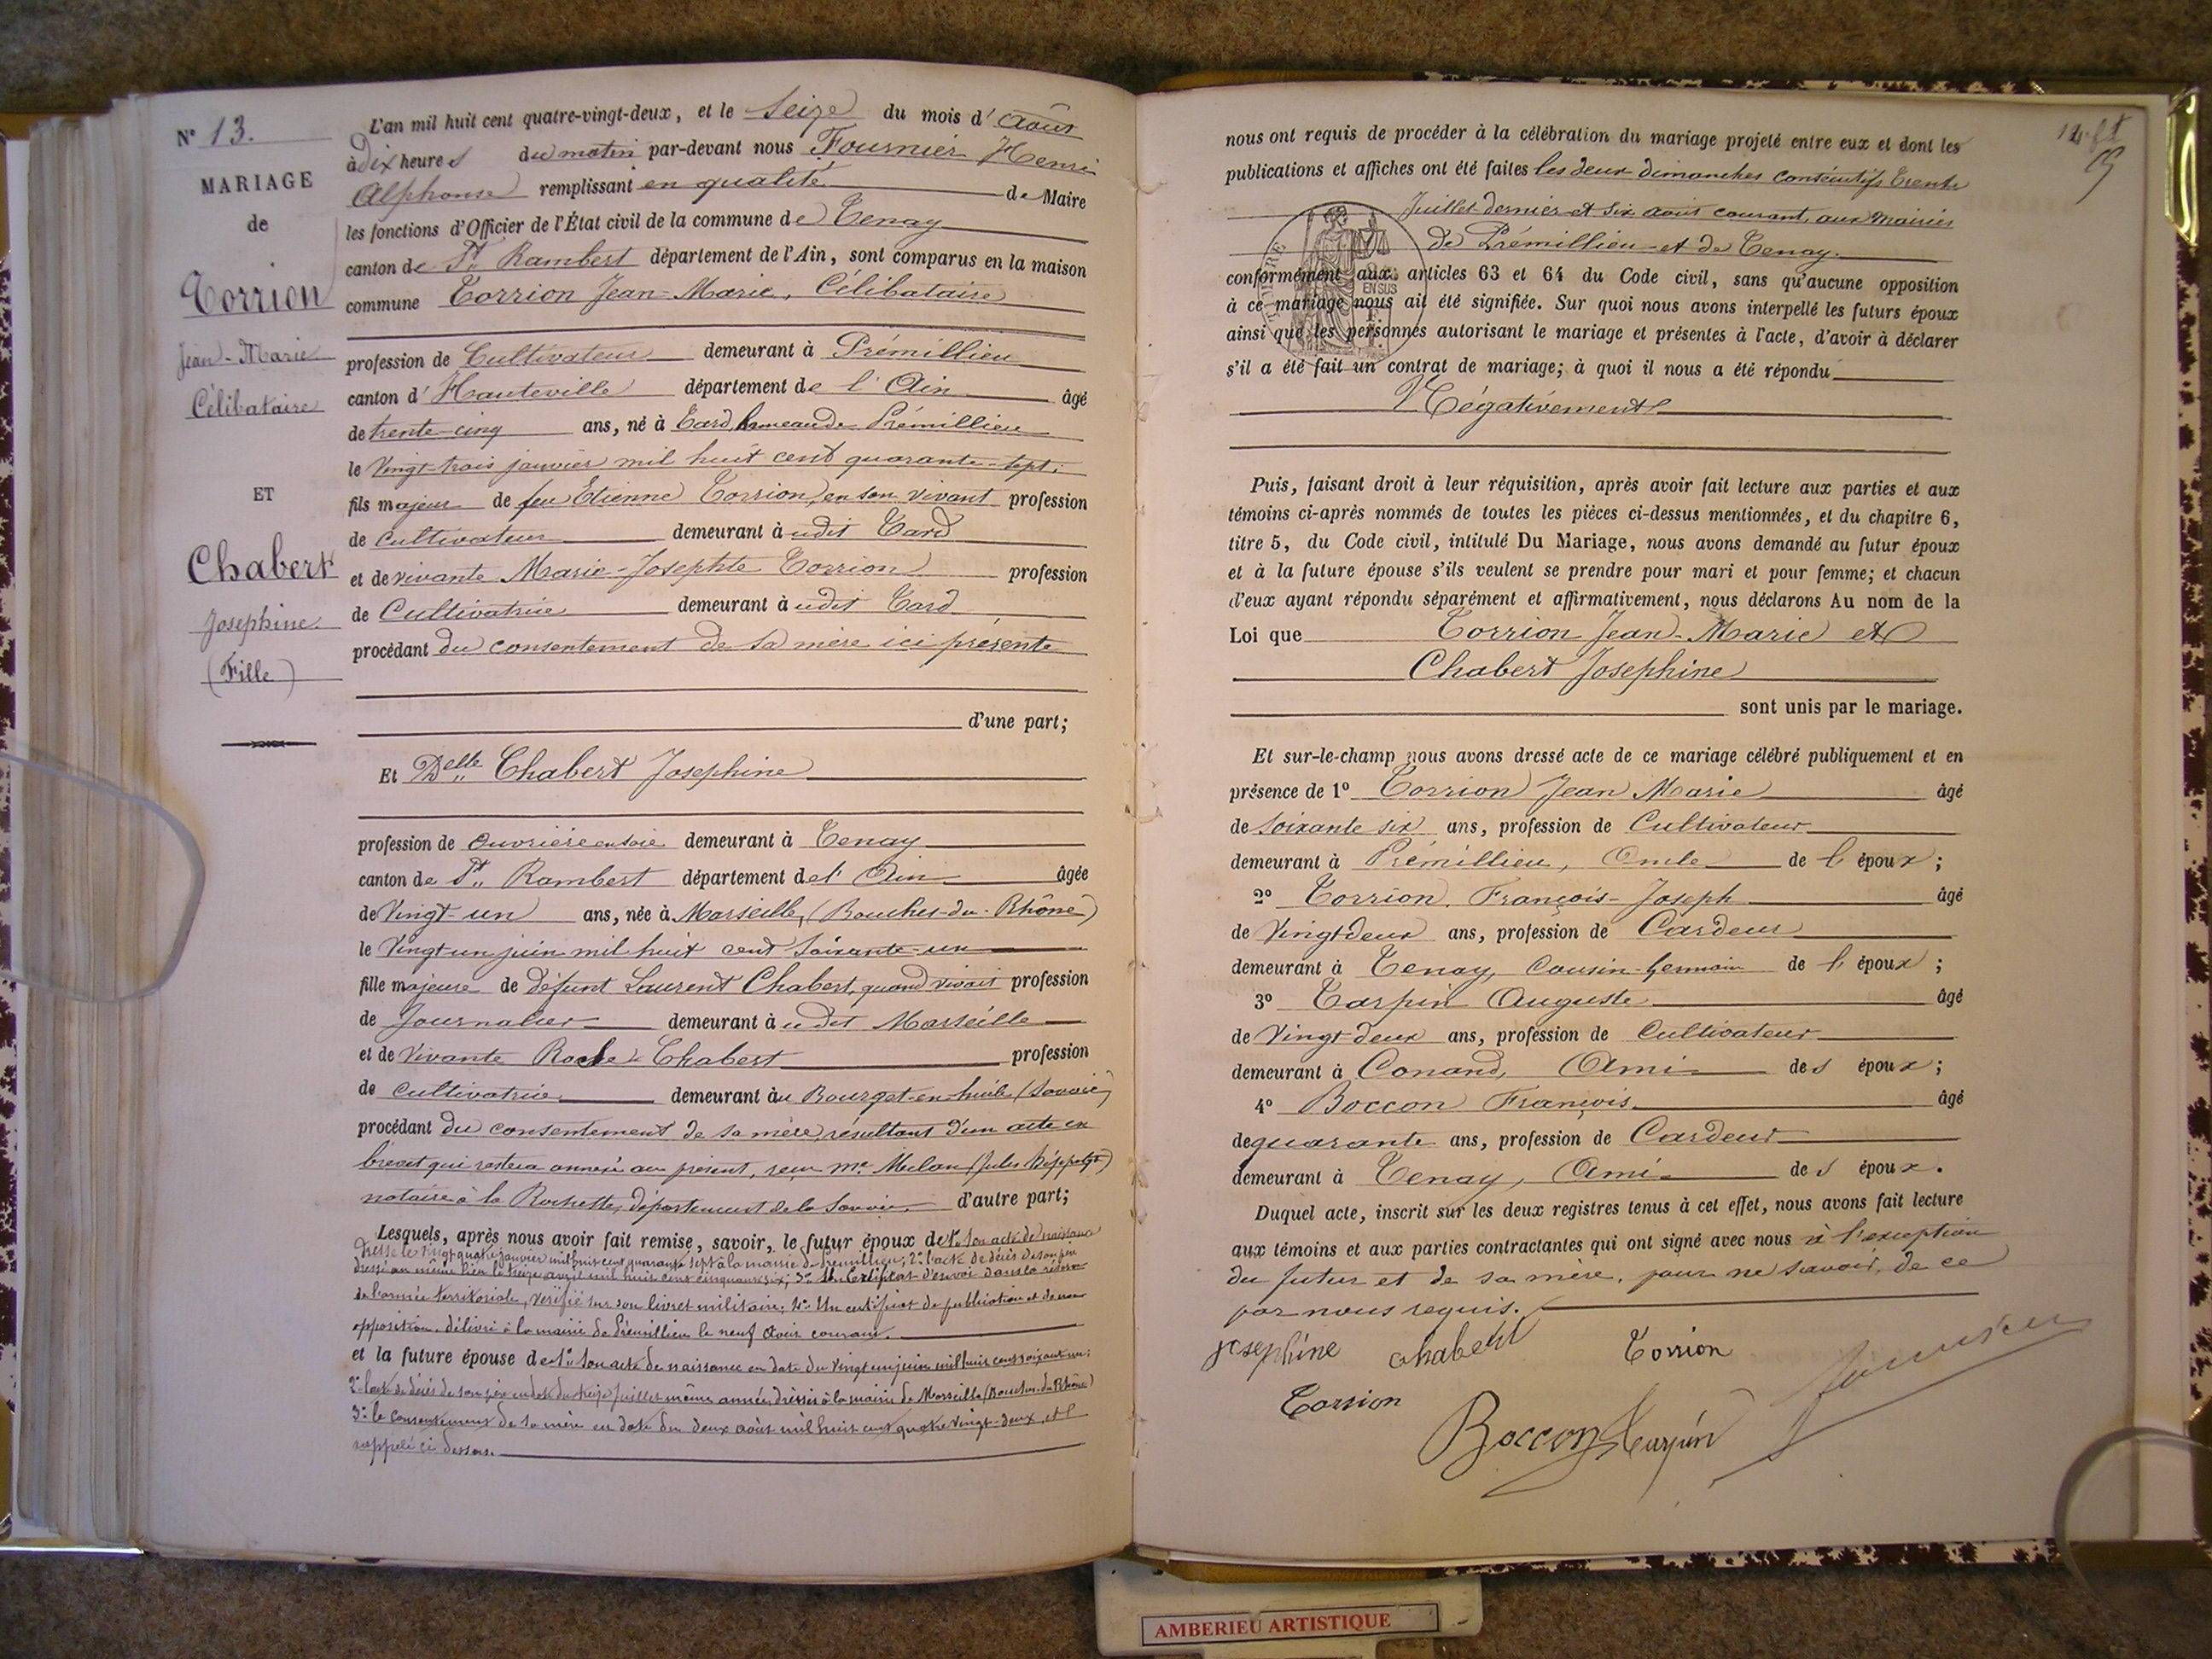 N° 13.
MARIAGE
de
Torrion
Jean-Marie
Célibataire
ET
Chabert
Josephine
(Fille)
L'an mil huit cent quatre-vingt-deux, et le Seize du mois d'Août
à Dix heures du matin par-devant nous Fournier Henri
Alphonse remplissant en qualité de Maire
les fonctions d'Officier de l'État civil de la commune de Tenay
canton de St Rambert département de l'Ain, sont comparus en la maison
commune Torrion Jean-Marie, Célibataire
profession de Cultivateur demeurant à Prémillieu
canton d'Hauteville département de l'Ain âgé
de trente-cinq ans, né à Tard, hameau de Prémillieu
le Vingt-trois janvier mil huit cent quarante-sept.
fils majeur de feu Etienne Torrion, en son vivant profession
de Cultivateur demeurant audit Tard
et de vivante Marie-Josephte Torrion profession
de Cultivatrice demeurant audit Tard
procédant du consentement de sa mère ici présente
d'une part;
Et Delle Chabert Josephine
profession de ouvrière en soie demeurant à Tenay
canton de St Rambert département de l'Ain âgée
de Vingt-un ans, née à Marseille, (Bouches-du-Rhône)
le Vingt-un juin mil huit cent soixante-un
fille majeure de défunt Laurent Chabert, quand vivait profession
de Journalier demeurant audit Marseille
et de Vivante Roche Chabert profession
de cultivatrice demeurant au Bourget-en-huile (Savoie)
procédant du consentement de sa mère, résultant d'un acte en
brevet qui restera annexé au présent, reçu me Mulan (Jules )
notaire à la Rochette, département de la Savoie, d'autre part;
Lesquels, après nous avoir fait remise, savoir, le futur époux de 1° son acte de naissance
dressé le vingt quatre janvier mil huit cent quarante sept à la mairie de Prémillieu; 2° l'acte de décès de son père
dressé au même lieu le treize avril mil huit cent cinquante six; 3° Un Certificat d'envoi dans la réserve
de l'armée territoriale, vérifié sur son livret militaire; 4° Un certificat de publication et de non
opposition, délivré à la mairie de Prémillieu le neuf Août courant.
et la future épouse de 1° son acte de naissance en date du vingt un juin mil huit cent soixante un;
2° l'acte de décès de son père en date du treize Juillet même année, dressés à la mairie de Marseille (Bouches-du-Rhône)
3° le consentement de sa mère en date du deux août mil huit cent quatre vingt-deux, et
rappelé ci dessus.
nous ont requis de procéder à la célébration du mariage projeté entre eux et dont les
publications et affiches ont été faites les deux dimanches consécutifs trente
Juillet dernier et six août courant, aux Mairies
de Prémillieu et de Tenay.
conformément aux articles 63 et 64 du Code civil, sans qu'aucune opposition
à ce mariage nous ait été signifiée. Sur quoi nous avons interpellé les futurs époux
ainsi que les personnes autorisant le mariage et présentes à l'acte, d'avoir à déclarer
s'il a été fait un contrat de mariage; à quoi il nous a été répondu
Négativement
Puis, faisant droit à leur réquisition, après avoir fait lecture aux parties et aux
témoins ci-après nommés de toutes les pièces ci-dessus mentionnées, et du chapitre 6,
titre 5, du Code civil, intitulé Du Mariage, nous avons demandé au futur époux
et à la future épouse s'ils veulent se prendre pour mari et pour femme; et chacun
d'eux ayant répondu séparément et affirmativement, nous déclarons Au nom de la
Loi que Torrion Jean-Marie et
Chabert Josephine
sont unis par le mariage.
Et sur-le-champ nous avons dressé acte de ce mariage célébré publiquement et en
présence de 1° Torrion Jean Marie âgé
de soixante six ans, profession de Cultivateur
demeurant à Prémillieu, Oncle de l'époux;
2° Torrion, François-Joseph âgé
de Vingt deux ans, profession de Cardeur
demeurant à Tenay, Cousin-Germain de l'époux;
3° Tarpin Auguste âgé
de Vingt-deux ans, profession de Cultivateur
demeurant à Conand, Ami des époux;
4° Boccon François âgé
de quarante ans, profession de Cardeur
demeurant à Tenay, Ami des époux.
Duquel acte, inscrit sur les deux registres tenus à cet effet, nous avons fait lecture
aux témoins et aux parties contractantes qui ont signé avec nous à l'exception
du futur et de sa mère, pour ne savoir, de ce
par nous requis.
josephine chabert Torrion
Torrion
Boccon Tarpin
AMBERIEU ARTISTIQUE